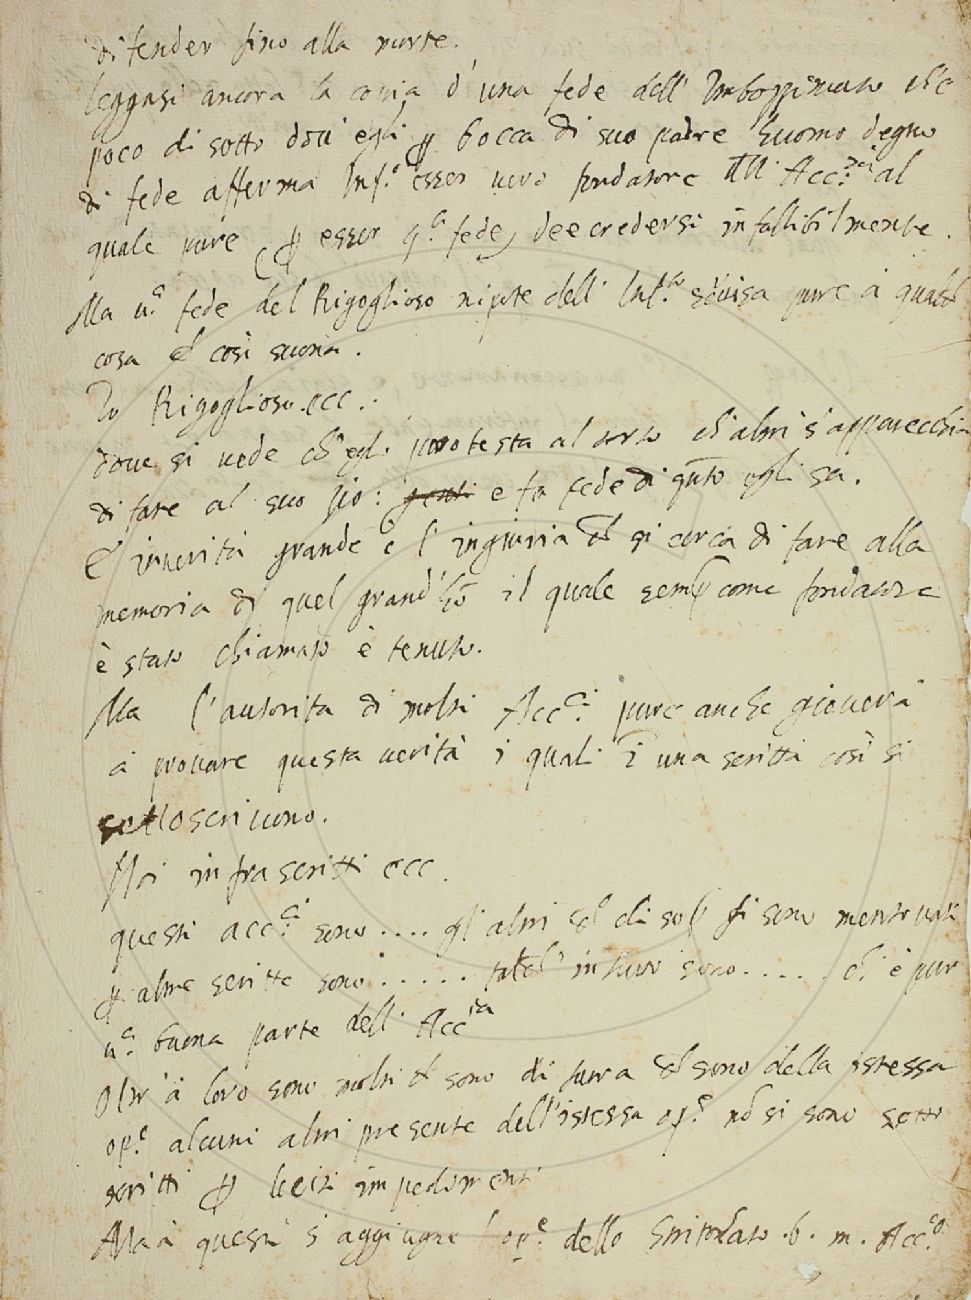 difender fino alla morte.
leggasi ancora la copia d'una fede dell' Imbozzimato ch'è
poco di sotto dou' egli ꝑ bocca di suo padre huomo degno
di fede afferma Inf.º esser uero fondatore dll' Acc.ᶜⁱ al
quale pure ꝑ esser q.ᵃ fede, deecredersi infallibilmente.
Ma u.ª fede del Rigoglioso nipote dell' Inf.ᵗᵒ pure a qualche
cosa et così suona.
Io Rigoglioso.ecc..
doue si uede ch'egli protesta al torto ch'altri s'apparecchia
di fare al suo zio: e fa fede di q̃to egli sa.
E' inuerità grande è l' ingiuria ch̃ si cerca di fare alla
memoria di quel grand'hõ il quale semꝑ come fondatore
è stato chiamato è tenuto.
Ma l'autorità di molti Acc.ᶜⁱ pure anche giouerà
à prouare questa uerità i quali ĩ una scritta così si
sottoscriuono.
Noi infrascritti ecc.
questi acc.ᶜⁱ sono .... gli altri ch̃ di sop.ᵃ si sono mentouati
ꝑ altre scritte sono ..... in tutto sono ..... ch' è pur
u.ª buona parte dell' Accⁱᵃ
Oltr' à loro sono molti ch̃ sono di fuora ch̃ sono della istessa
op.ᵉ alcuni altri presente dell'istessa op.ᵉ nõ si sono sotto
scritti ꝑ leciti impedimenti
Ma à questi s'aggiugne l'op.ᵉ dello Spirito b. m. Acc.ᶜᵒ